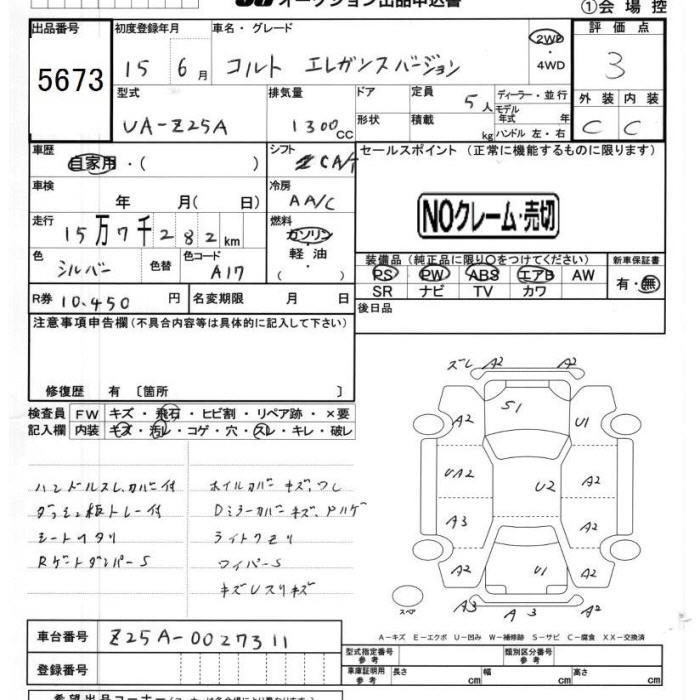 オークション出品申込書
①会場控
出品番号
5673
初度登録年月
15 6月
車名・グレード
コルト エレガンスバージョン
2WD
・4WD
評価点
3
型式
UA-Z25A
排気量
1300cc
ドア
形状
定員
5人
積載
kg
ディーラー・並行
モデル年式 年
ハンドル 左・右
外装 内装
C C
車歴
自家用・( )
シフト
CA/T
セールスポイント (正常に機能するものに限ります)
NOクレーム・売切
車検
年 月( 日)
冷房
AA/C
走行
15万7千282km
燃料
ガソリン
軽油
( )
色
シルバー
色替
色コード
A17
装備品(純正品に限り○をつけてください)
PS PW ABS エアB AW
SR ナビ TV カワ
新車保証書
有・無
R券 10.450円
名変期限 月 日
後日品
注意事項申告欄(不具合内容等は具体的に記入して下さい)
修復歴 有 〔箇所 〕
検査員記入欄
FW キズ・飛石・ヒビ割・リペア跡・×要
内装 キズ・汚レ・コゲ・穴・スレ・キレ・破レ
ハンドルスレ、カバー付
ダッシュ板トレー付
シートヘタリ
RゲートダンパーS
ホイルカバーキズ、ワレ
Dミラーカバーキズ、Pハゲ
ライトクモリ
ワイパーS
キズUスリキズ
ズレ A2 A2
A2 S1 U1
UA2 U2 A2
A3 A2
A2 U1 A2
A3 A3 A2
スペア
A-キズ E-エクボ U-凹み W-補修跡 S-サビ C-腐食 XX-交換済
車台番号
Z25A-0027311
登録番号
型式指定番号
参考
類別区分番号
参考
車庫証明用
参考
長さ cm
幅 cm
高さ cm
希望出品コーナー